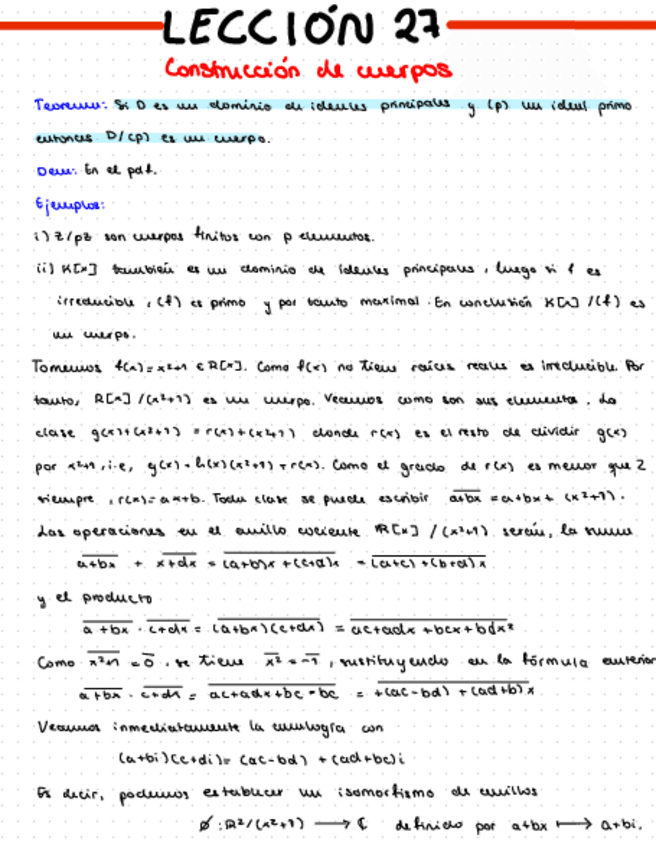 LECCIÓN 27
Construcción de cuerpos
Teorema: Si D es un dominio de ideales principales y (p) un ideal primo
entonces D/(p) es un cuerpo.
Dem: En el pdf.
Ejemplos:
i) Z/pZ son cuerpos finitos con p elementos.
ii) K[x] también es un dominio de ideales principales, luego si f es
irreducible, (f) es primo y por tanto maximal. En conclusión K[x]/(f) es
un cuerpo.
Tomemos f(x)=x²+1 ∈ R[x]. Como f(x) no tiene raíces reales es irreducible. Por
tanto, R[x]/(x²+1) es un cuerpo. Veamos como son sus elementos. La
clase g(x)+(x²+1) = r(x)+(x²+1) donde r(x) es el resto de dividir g(x)
por x²+1, i.e, g(x)=h(x)(x²+1)+r(x). Como el grado de r(x) es menor que 2
siempre, r(x)=ax+b. Toda clase se puede escribir a+bx = a+bx+(x²+1).
Las operaciones en el anillo cociente R[x]/(x²+1) serán, la suma
a+bx + x+dx = (a+b)x+(c+d)x = (a+c)+(b+d)x
y el producto
a+bx · c+dx = (a+bx)(c+dx) = ac+adx+bcx+bdx²
Como x²+1 = 0, se tiene x² = -1, sustituyendo en la fórmula anterior
a+bx · c+dx = ac+adx+bc-bc = +(ac-bd)+(ad+b)x
Veamos inmediatamente la analogía con
(a+bi)(c+di)= (ac-bd)+(ad+bc)i
Es decir, podemos establecer un isomorfismo de anillos
Ø:R²/(x²+1) ⟶ ℂ definido por a+bx ⟼ a+bi.